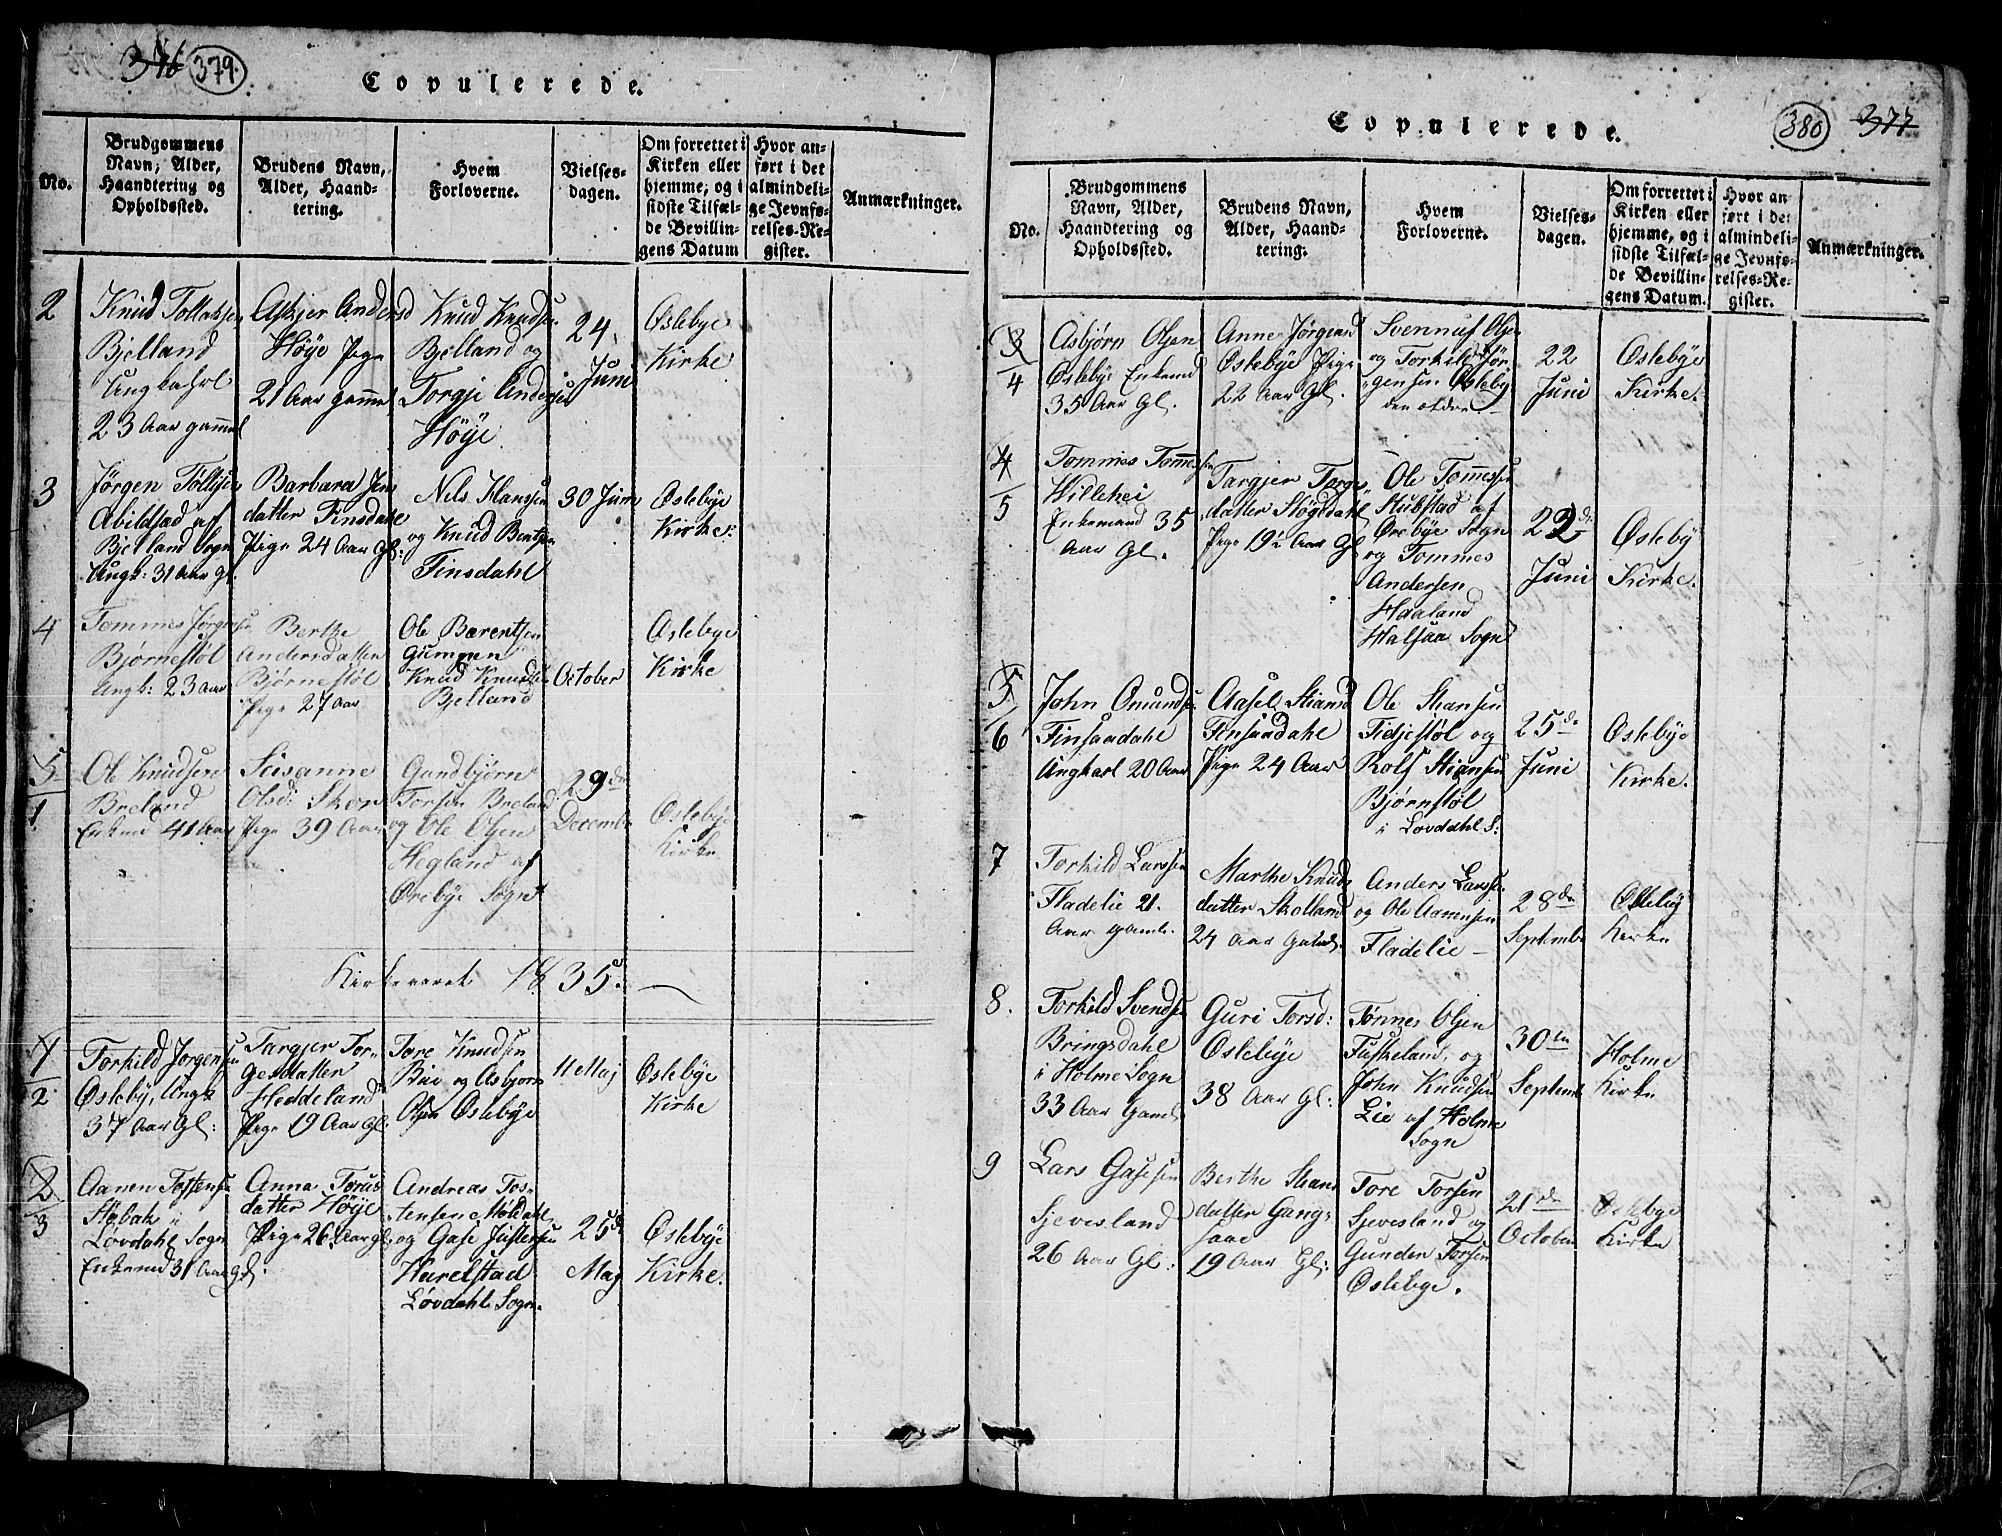 346 379.
Copulerede.
No.
Brudgommens
Navn, Alder,
Haandtering og
Opholdssted.
Brudens Navn,
Alder, Haand-
tering.
Hvem
Forloverne.
Vielses-
dagen.
Om forrettet i
Kirken eller
hjemme, og i
sidste Tilfæl-
de Bevillin-
gens Datum
Hvor an-
ført i det
almindeli-
ge Jevnfø-
relses-Re-
gister.
Anmærkninger.
2
Knud Tollaksen
Bjelland
Ungkahrl
23 Aar gammel
Askjer Andersd
Høye Pige
21 Aar gammel
Knud Knudsen
Bjelland og
Torgje Andersen
Høye.
24.
Juni
Oslebye
Kirke
3
Jørgen Tølløfsen
Abildstad af
Bjelland Sogn
Ungk: 31 Aar gl.
Barbara Jens
datter Finsdahl
Pige 24 Aar Gl:
Nils Hanssen
og Knud Bentsen
Finsdahl
30 Juni
Øslebye
Kirke:
4
Tommes Jørgensen
Bjørnestøl
Ungk: 23 Aar
Berthe
Andersdatter
Bjørnestøl
Pige 27 Aar
Ole Barentsen
Gummen
Knud Knudsen
Bjelland
October
Øslebye
Kirke
5
1
Ole Knudsen
Breland
Enkemd 41 Aar
Susanne
Olsd: Skor
Pige 39 Aar
Gundbjørn
Torsen Breland
og Ole Olsen
Hegland af
Ørebye Sogn
29de
Decembr
Oslebye
Kirke
Kirkeaaret 1835.
1
2
Torkild Jorgensen
Østeby, Ungk
37 Aar Gl:
Targjer Tor-
gesdatter
Heddeland
Pige 19 Aar Gl.
Tore Knudsen
Bue og Asbjørn
Olsen Oslebye
11 Maj
Øslebye
Kirke
2
3
Aanen Tostensen
Stobak i
Løvdahl Sogn
Enkemd 31 Aar gl
Anna Torus
datter Høye
Pige 26 Aar gl.
Andreas Tos-
tensen Møldahl
og Gase Justersen
Harelstad
Løvdahl Sogn.
25de
Maj
Øslebye
Kirke.
Copulerede.
380 377
No.
Brudgommens
Navn, Alder,
Haandtering og
Opholdssted.
Brudens Navn,
Alder, Haand-
tering.
Hvem
Forloverne.
Vielses-
dagen.
Om forrettet i
Kirken eller
hjemme, og i
sidste Tilfæl-
de Bevillin-
gens Datum.
Hvor an
ført i det
almindeli-
ge Jevnfø-
relses-Re-
gister.
Anmærkninger.
3
4
Asbjørn Olsen
Oslebye Enkemd
35 Aar Gl.
Anne Jørgensd
Oslebye Pige
22 Aar Gl.
Svennuf Olsen
og Torkild Jør-
gensen Østeby
den ældre
22
Juni
Oslebye
Kirke.
4
5
Tommes Tommessen
Hillehei
Enkemand 35
Aar Gl.
Targjer Targes
datter Høgedahl
Pige 19½ Aar Gl
Ole Tommessen
Stubstad af
Ørebye Sogn
og Tommes
Andersen
Haaland
Halsaa Sogn
22de
Juni
Østeby
Kirke.
5
6
John Omundsen
Finsaadahl
Ungkarl 20 Aar
Aasel Stiansd
Finsaadahl
Pige 24 Aar
Ole Stansen
Tidjestøl og
Rolf Stiansen
Bjørnstøl
i Lovdahl S:
25de
Juni
Øslebye
Kirke.
7
Torkild Larssen
Fladelie 21.
Aar gaml.
Marthe Knuds
datter Skolland
24 Aar gaml.
Anders Larssen
og Ole Aanensen
Fladelie
28de
Septembr
Østeby
Kirke
8.
Torkild Svendsen
Bringsdahl
i Holme Sogn
33 Aar Gaml
Guri Torsd:
Oslebye
38 Aar Gl:
Tønnes Olsen
Fuskeland, og
John Knudsen
Lie af Holme
Sogn
30te
Septembr
Holme
Kirke
9
Lars Gasesen
Sjevesland
26 Aar Gl:
Berthe Stians
datter Gang-
saae
19 Aar Gl:
Tore Torsen
Sjevesland og
Gunder Torsen
Øslebye.
21de
October
Øslebye
Kirke